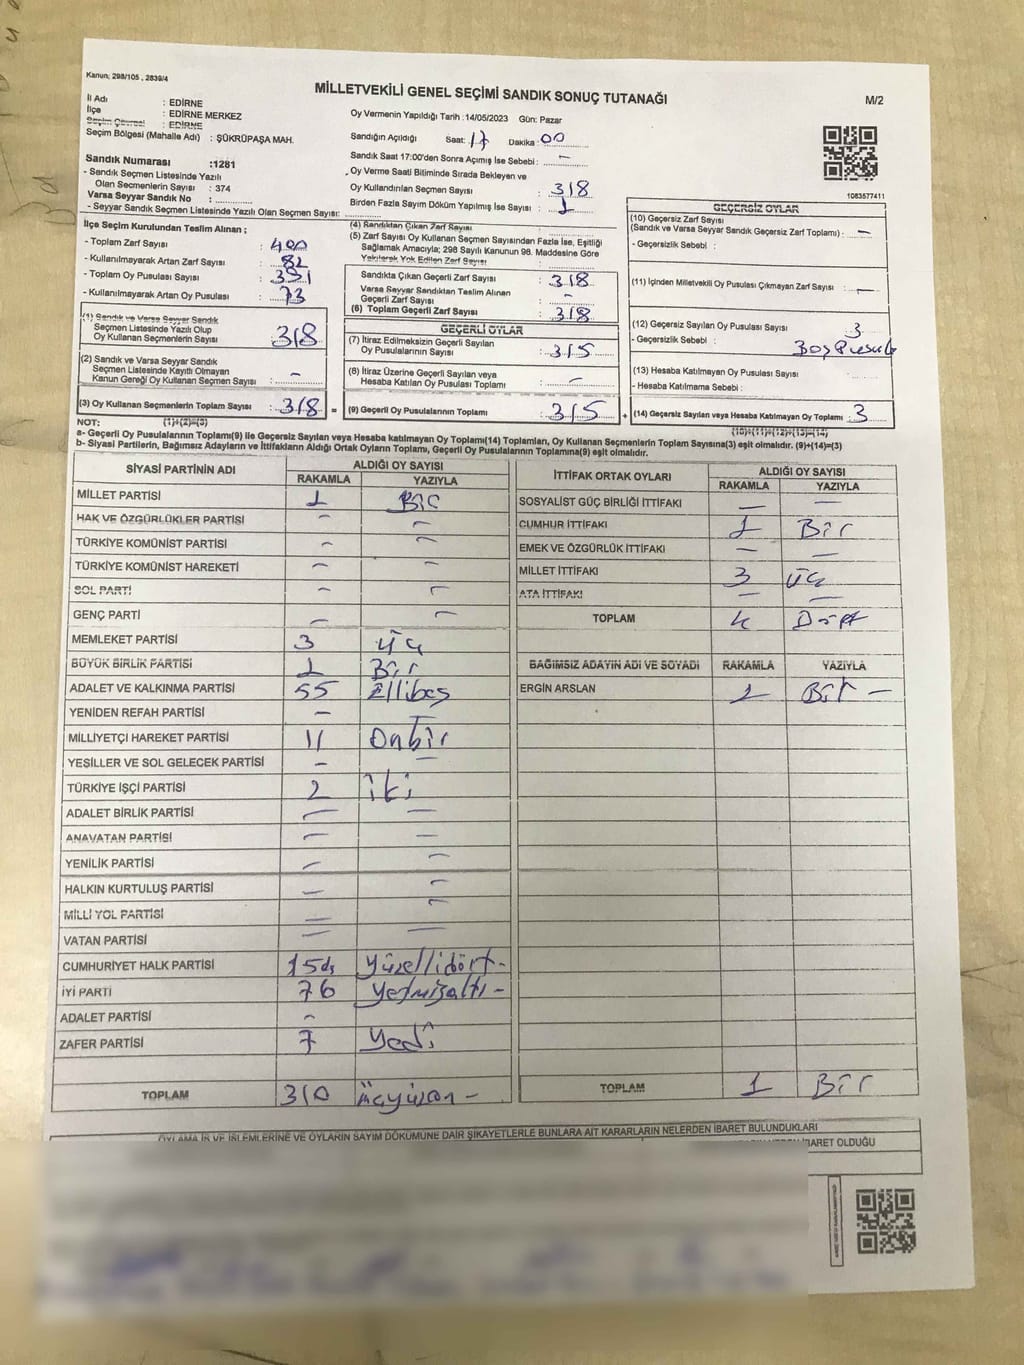 Kanun; 298/105 , 2839/4
MİLLETVEKİLİ GENEL SEÇİMİ SANDIK SONUÇ TUTANAĞI
M/2
İl Adı : EDİRNE
İlçe : EDİRNE MERKEZ
Seçim Çevresi : EDİRNE
Seçim Bölgesi (Mahalle Adı) : ŞÜKRÜPAŞA MAH.
Sandık Numarası :1281
- Sandık Seçmen Listesinde Yazılı
Olan Seçmenlerin Sayısı : 374
Varsa Seyyar Sandık No :
- Seyyar Sandık Seçmen Listesinde Yazılı Olan Seçmen Sayısı:
Oy Vermenin Yapıldığı Tarih :14/05/2023 Gün: Pazar
Sandığın Açıldığı Saat: 17 Dakika: 00
Sandık Saat 17:00'den Sonra Açımış İse Sebebi : –
Oy Verme Saati Bitiminde Sırada Bekleyen ve
Oy Kullandırılan Seçmen Sayısı : 318
Birden Fazla Sayım Döküm Yapılmış İse Sayısı : 1
1083577411
İlçe Seçim Kurulundan Teslim Alınan ;
- Toplam Zarf Sayısı : 400
- Kullanılmayarak Artan Zarf Sayısı : 82
- Toplam Oy Pusulası Sayısı : 391
- Kullanılmayarak Artan Oy Pusulası : 73
(1) Sandık ve Varsa Seyyar Sandık
Seçmen Listesinde Yazılı Olup
Oy Kullanan Seçmen Sayısı : 318
(2) Sandık ve Varsa Seyyar Sandık
Seçmen Listesinde Kayıtlı Olmayan
Kanun Gereği Oy Kullanan Seçmen Sayısı : –
(3) Oy Kullanan Seçmenlerin Toplam Sayısı : 318
(4) Sandıktan Çıkan Zarf Sayısı :
(5) Zarf Sayısı Oy Kullanan Seçmen Sayısından Fazla İse, Eşitliği
Sağlamak Amacıyla; 298 Sayılı Kanunun 98. Maddesine Göre
Yakılarak Yok Edilen Zarf Sayısı :
Sandıkta Çıkan Geçerli Zarf Sayısı : 318
Varsa Seyyar Sandıktan Teslim Alınan
Geçerli Zarf Sayısı : –
(6) Toplam Geçerli Zarf Sayısı : 318
GEÇERLİ OYLAR
(7) İtiraz Edilmeksizin Geçerli Sayılan
Oy Pusulalarının Sayısı : 315
(8) İtiraz Üzerine Geçerli Sayılan veya
Hesaba Katılan Oy Pusulası Toplamı : –
= (9) Geçerli Oy Pusulalarının Toplamı : 315
GEÇERSİZ OYLAR
(10) Geçersiz Zarf Sayısı
(Sandık ve Varsa Seyyar Sandık Geçersiz Zarf Toplamı) : –
- Geçersizlik Sebebi :
(11) İçinden Milletvekili Oy Pusulası Çıkmayan Zarf Sayısı : –
(12) Geçersiz Sayılan Oy Pusulası Sayısı : 3
- Geçersizlik Sebebi : 3 Boş Pusula
(13) Hesaba Katılmayan Oy Pusulası Sayısı :
- Hesaba Katılmama Sebebi :
+ (14) Geçersiz Sayılan veya Hesaba Katılmayan Oy Toplamı : 3
NOT: (1)+(2)=(3) (10)+(11)+(12)+(13)=(14)
a- Geçerli Oy Pusulalarının Toplamı(9) ile Geçersiz Sayılan veya Hesaba katılmayan Oy Toplamı(14) Toplamları, Oy Kullanan Seçmenlerin Toplam Sayısına(3) eşit olmalıdır. (9)+(14)=(3)
b- Siyasi Partilerin, Bağımsız Adayların ve İttifakların Aldığı Ortak Oyların Toplamı, Geçerli Oy Pusulalarının Toplamına(9) eşit olmalıdır.
SİYASİ PARTİNİN ADI ALDIĞI OY SAYISI
RAKAMLA YAZIYLA
MİLLET PARTİSİ 1 Bir
HAK VE ÖZGÜRLÜKLER PARTİSİ – –
TÜRKİYE KOMÜNİST PARTİSİ – –
TÜRKİYE KOMÜNİST HAREKETİ – –
SOL PARTİ – –
GENÇ PARTİ – –
MEMLEKET PARTİSİ 3 üç
BÜYÜK BİRLİK PARTİSİ 1 Bir
ADALET VE KALKINMA PARTİSİ 55 Ellibeş
YENİDEN REFAH PARTİSİ – –
MİLLİYETÇİ HAREKET PARTİSİ 11 Onbir
YEŞİLLER VE SOL GELECEK PARTİSİ – –
TÜRKİYE İŞÇİ PARTİSİ 2 iki
ADALET BİRLİK PARTİSİ – –
ANAVATAN PARTİSİ – –
YENİLİK PARTİSİ – –
HALKIN KURTULUŞ PARTİSİ – –
MİLLİ YOL PARTİSİ – –
VATAN PARTİSİ – –
CUMHURİYET HALK PARTİSİ 154 yüzellidört -
İYİ PARTİ 76 yetmişaltı -
ADALET PARTİSİ –
ZAFER PARTİSİ 7 Yedi
TOPLAM 310 üçyüzon -
İTTİFAK ORTAK OYLARI ALDIĞI OY SAYISI
RAKAMLA YAZIYLA
SOSYALİST GÜÇ BİRLİĞİ İTTİFAKI – –
CUMHUR İTTİFAKI 1 Bir
EMEK VE ÖZGÜRLÜK İTTİFAKI – –
MİLLET İTTİFAKI 3 üç
ATA İTTİFAKI – –
TOPLAM 4 Dört
BAĞIMSIZ ADAYIN ADI VE SOYADI RAKAMLA YAZIYLA
ERGİN ARSLAN 1 Bir –
TOPLAM 1 Bir
OYLAMA İŞ VE İŞLEMLERİNE VE OYLARIN SAYIM DÖKÜMÜNE DAİR ŞİKAYETLERLE BUNLARA AİT KARARLARIN NELERDEN İBARET BULUNDUKLARI
İBARET OLDUĞU